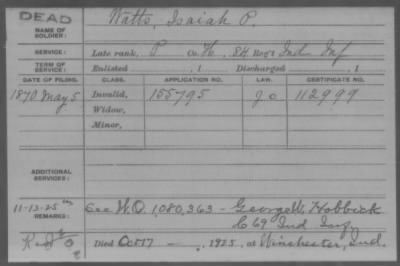 DEAD
NAME OF SOLDIER: Watts, Isaiah P.
SERVICE: Late rank, P Co. H, 84 Reg't Ind Inf
TERM OF SERVICE: Enlisted , 1 Discharged , 1
DATE OF FILING. CLASS. APPLICATION NO. LAW. CERTIFICATE NO.
1870 May 5 Invalid, 155795 112999
Widow,
Minor,
ADDITIONAL SERVICES:
11-13-25 See W.O. 1080,363 - George W. Hobbick
REMARKS: C 69 Ind Inf
Died Oct 17 - , 1925, at Winchester, Ind.